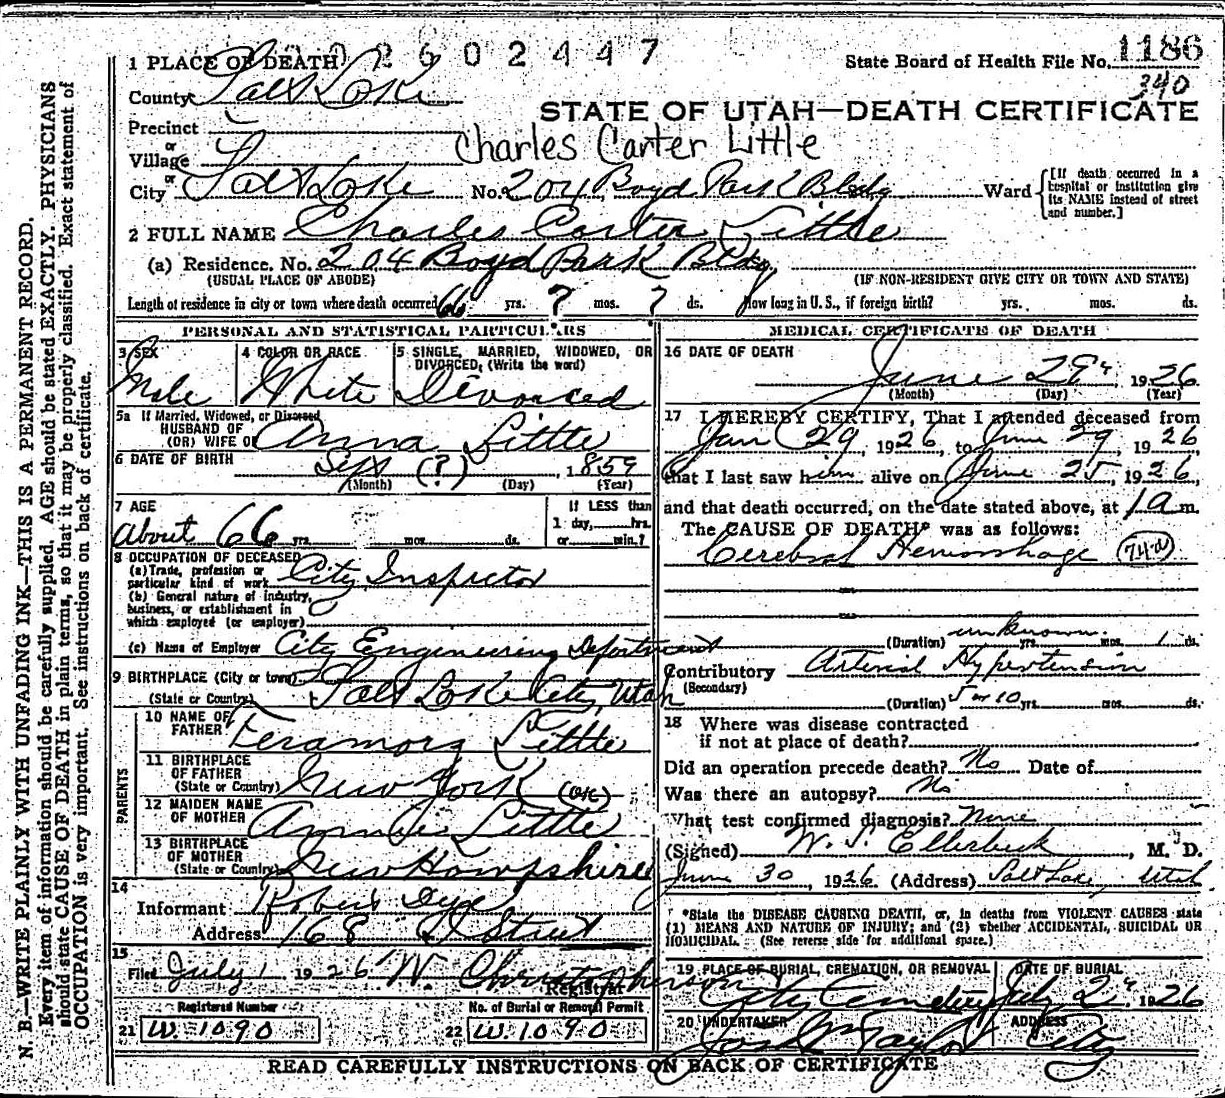 2602447
1 PLACE OF DEATH
State Board of Health File No. 1186
340
County Salt Lake
STATE OF UTAH—DEATH CERTIFICATE
Precinct
or
Village
Charles Carter Little
or
City Salt Lake No. 204 Boyd Park Bldg St. Ward
[If death occurred in a hospital or institution give its NAME instead of street and number.]
2 FULL NAME Charles Carter Little
(a) Residence. No. 204 Boyd Park Bldg
(USUAL PLACE OF ABODE) (IF NON-RESIDENT GIVE CITY OR TOWN AND STATE)
Length of residence in city or town where death occurred 66 yrs. ? mos. ? ds. How long in U. S., if foreign birth? yrs. mos. ds.
PERSONAL AND STATISTICAL PARTICULARS
3 SEX
Male
4 COLOR OR RACE
White
5 SINGLE, MARRIED, WIDOWED, OR
DIVORCED, (Write the word)
Divorced
5a If Married, Widowed, or Divorced
HUSBAND OF
(OR) WIFE OF
Anna Little
6 DATE OF BIRTH Sept (?) 1859
(Month) (Day) (Year)
7 AGE
About 66 yrs. mos. ds.
If LESS than
1 day, hrs.
or min.?
8 OCCUPATION OF DECEASED
(a) Trade, profession or
particular kind of work City Inspector
(b) General nature of industry,
business, or establishment in
which employed (or employer)
(c) Name of Employer City Engineering Department
9 BIRTHPLACE (City or town)
(State or Country) Salt Lake City, Utah
PARENTS
10 NAME OF
FATHER Feramorz Little
11 BIRTHPLACE
OF FATHER
(State or Country) New York (OK)
12 MAIDEN NAME
OF MOTHER Annie Little
13 BIRTHPLACE
OF MOTHER
(State or Country) New Hampshire
14
Informant Robert Dye
Address 168 Street
15
Filed July 1 1926 W. Christopherson
Registrar
Registered Number
21 W. 1090
No. of Burial or Removal Permit
22 W. 1090
MEDICAL CERTIFICATE OF DEATH
16 DATE OF DEATH
June 29" 1926
(Month) (Day) (Year)
17 I HEREBY CERTIFY, That I attended deceased from
Jan 29, 1926, to June 29, 1926
that I last saw him alive on June 25, 1926,
and that death occurred, on the date stated above, at 1 a m.
The CAUSE OF DEATH* was as follows:
Cerebral Hemorrhage (74a)
(Duration) unknown yrs. mos. 1 ds.
Contributory Arterial Hypertension
(Secondary)
(Duration) 5 or 10 yrs. mos. ds.
18 Where was disease contracted
if not at place of death?
Did an operation precede death? No Date of
Was there an autopsy? No
What test confirmed diagnosis? None
(Signed) W. S. Ellerbeck, M. D.
June 30, 1926. (Address) Salt Lake, Utah
*State the DISEASE CAUSING DEATH, or, in deaths from VIOLENT CAUSES state
(1) MEANS AND NATURE OF INJURY; and (2) whether ACCIDENTAL, SUICIDAL OR
HOMICIDAL. (See reverse side for additional space.)
19 PLACE OF BURIAL, CREMATION, OR REMOVAL
City Cemetery
DATE OF BURIAL
July 2" 1926
20 UNDERTAKER
Jos Wm Taylor
ADDRESS
City
READ CAREFULLY INSTRUCTIONS ON BACK OF CERTIFICATE
N. B.—WRITE PLAINLY WITH UNFADING INK—THIS IS A PERMANENT RECORD.
Every item of information should be carefully supplied. AGE should be stated EXACTLY. PHYSICIANS
should state CAUSE OF DEATH in plain terms, so that it may be properly classified. Exact statement of
OCCUPATION is very important. See instructions on back of certificate.